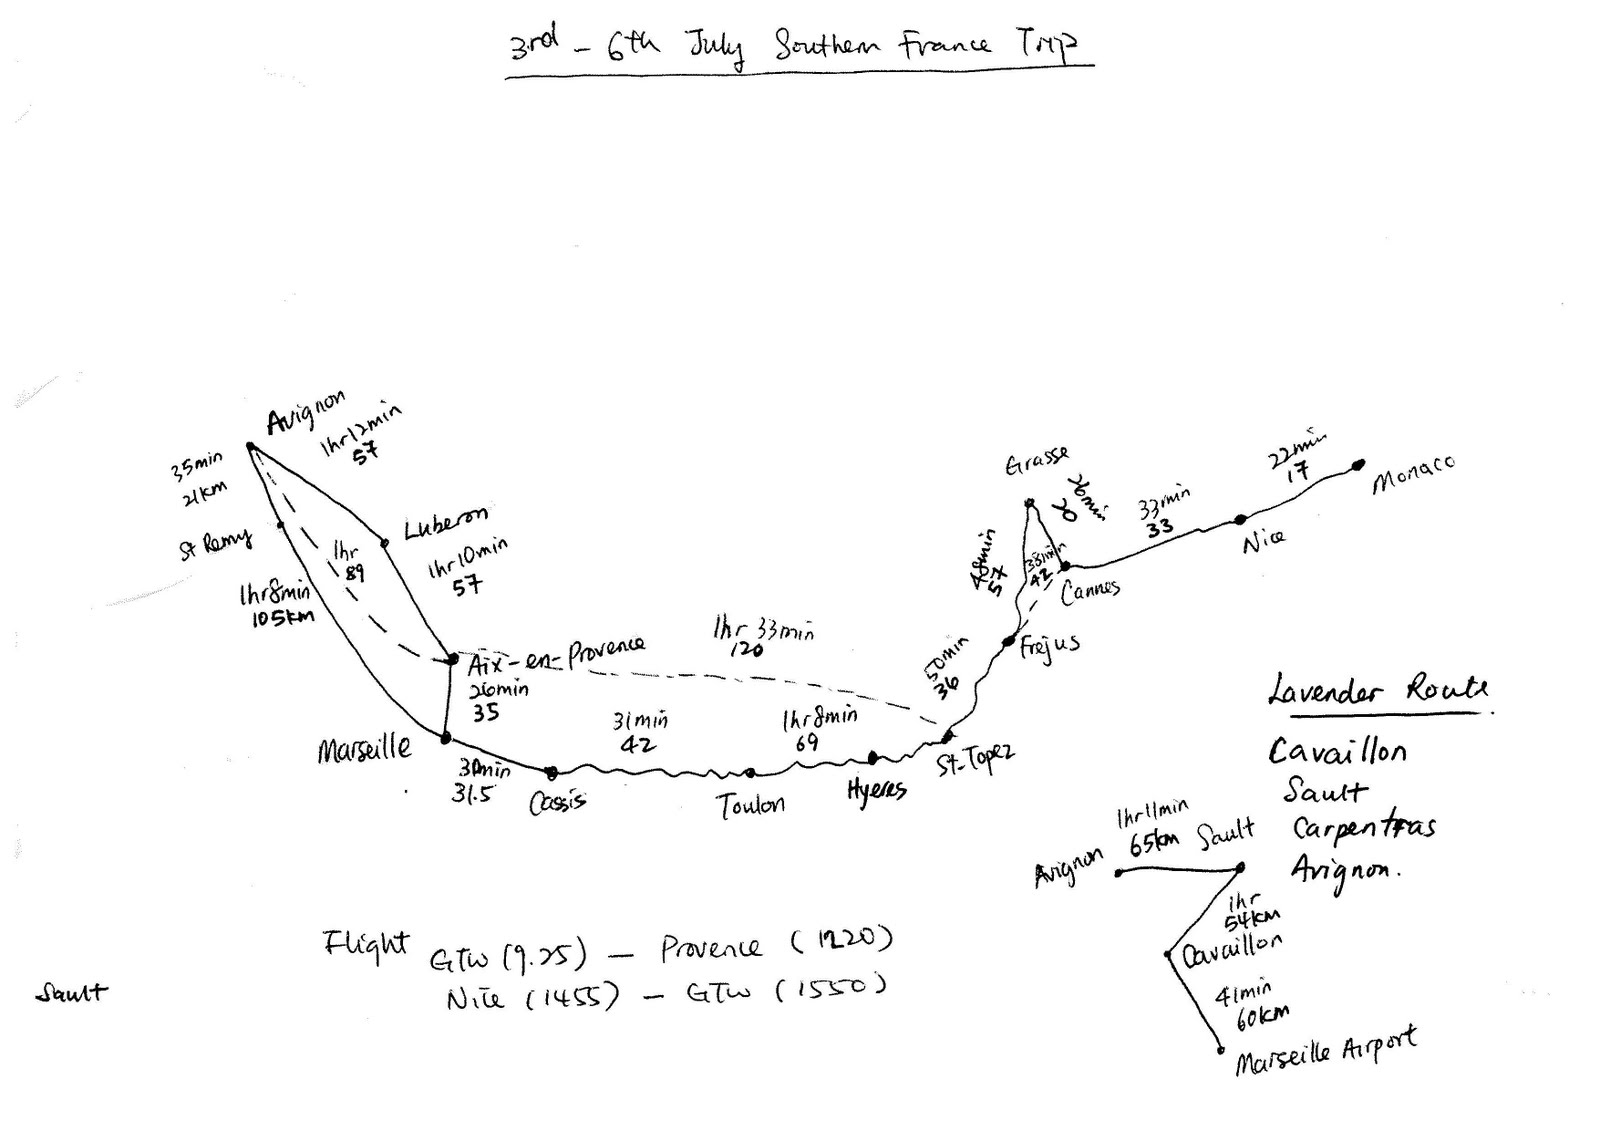 3rd - 6th July Southern France Trip
Avignon
1hr12min
57
35min
21km
St Remy
Luberon
1hr
89
1hr10min
57
1hr8min
105km
Aix-en-Provence
26min
35
1hr 33min
120
Marseille
30min
31.5
Cassis
31min
42
Toulon
1hr8min
69
Hyeres
St-Topez
50min
36
Frejus
48min
57
38min
42
Grasse
26min
20
Cannes
33min
33
Nice
22min
17
Monaco
Lavender Route
Cavaillon
Sault
Carpentras
Avignon.
Avignon
1hr11min
65km
Sault
1hr
54km
Cavaillon
41min
60km
Marseille Airport
Flight GTW (9.25) - Provence (1220)
Nice (1455) - GTW (1550)
Sault